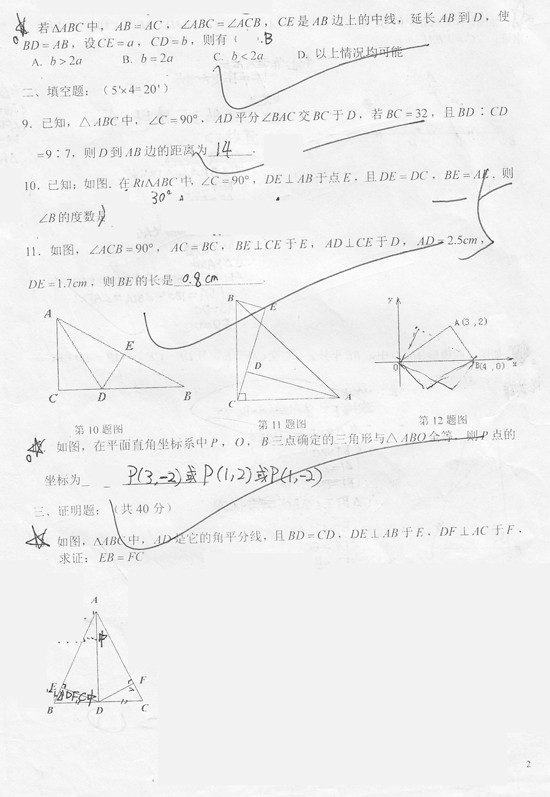 若△ABC中，AB=AC，∠ABC=∠ACB，CE是AB边上的中线，延长AB到D，使
BD=AB，设CE=a，CD=b，则有（ ）.B
A. b>2a B. b=2a C. b<2a D. 以上情况均可能
二、填空题：（5'×4=20'）
9. 已知，△ABC中，∠C=90°，AD平分∠BAC交BC于D，若BC=32，且BD：CD
=9：7，则D到AB边的距离为 14
10. 已知：如图. 在Rt△ABC中，∠C=90°，DE⊥AB于点E，且DE=DC，BE=AE，则
30°
∠B的度数是
11. 如图，∠ACB=90°，AC=BC，BE⊥CE于E，AD⊥CE于D，AD=2.5cm，
DE=1.7cm，则BE的长是 0.8cm
A E C D B
B E D C A
y A(3,2) O B(4,0) x
第10题图 第11题图 第12题图
如图，在平面直角坐标系中P，O，B三点确定的三角形与△ABO全等，则P点的
坐标为 P(3,-2)或P(1,2)或P(1,-2)
三、证明题：（共40分）
如图，△ABC中，AD是它的角平分线，且BD=CD，DE⊥AB于E，DF⊥AC于F，
求证：EB=FC
A
中
E F
B D C
2